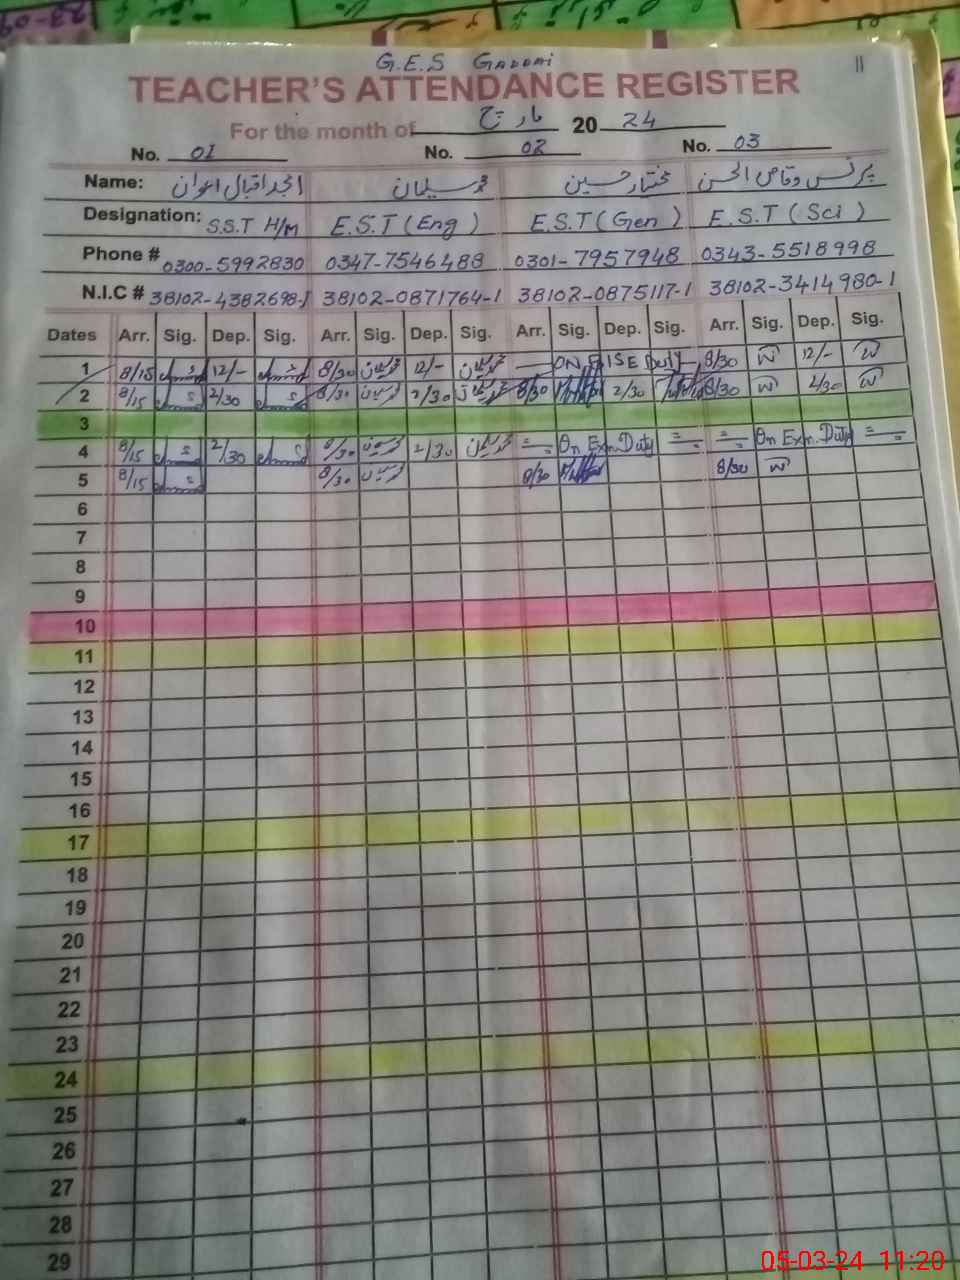 G.E.S Gaddai
11
TEACHER'S ATTENDANCE REGISTER
For the month of مارچ 20 24
No. 01 No. 02 No. 03
Name: امجد اقبال اعوان محمد سلیمان مختار حسین پرنس وقاص الحسن
Designation: S.S.T H/M E.S.T (Eng) E.S.T (Gen) E.S.T (Sci)
Phone # 0300-5992830 0347-7546488 0301-7957948 0343-5518998
N.I.C # 38102-4382698-1 38102-0871764-1 38102-0875117-1 38102-3414980-1
Dates Arr. Sig. Dep. Sig. Arr. Sig. Dep. Sig. Arr. Sig. Dep. Sig. Arr. Sig. Dep. Sig.
1 8/15 12/- 8/30 12/- Duty 8/30 12/-
2 8/15 2/30 8/30 2/30 8/30 2/30 8/30 2/30
3
4 8/15 2/30 8/30 2/30 = On Exm. Duty = = On Exm. Duty =
5 8/15 8/30 8/30 8/30
6
7
8
9
10
11
12
13
14
15
16
17
18
19
20
21
22
23
24
25
26
27
28
29
05-03-24 11:20